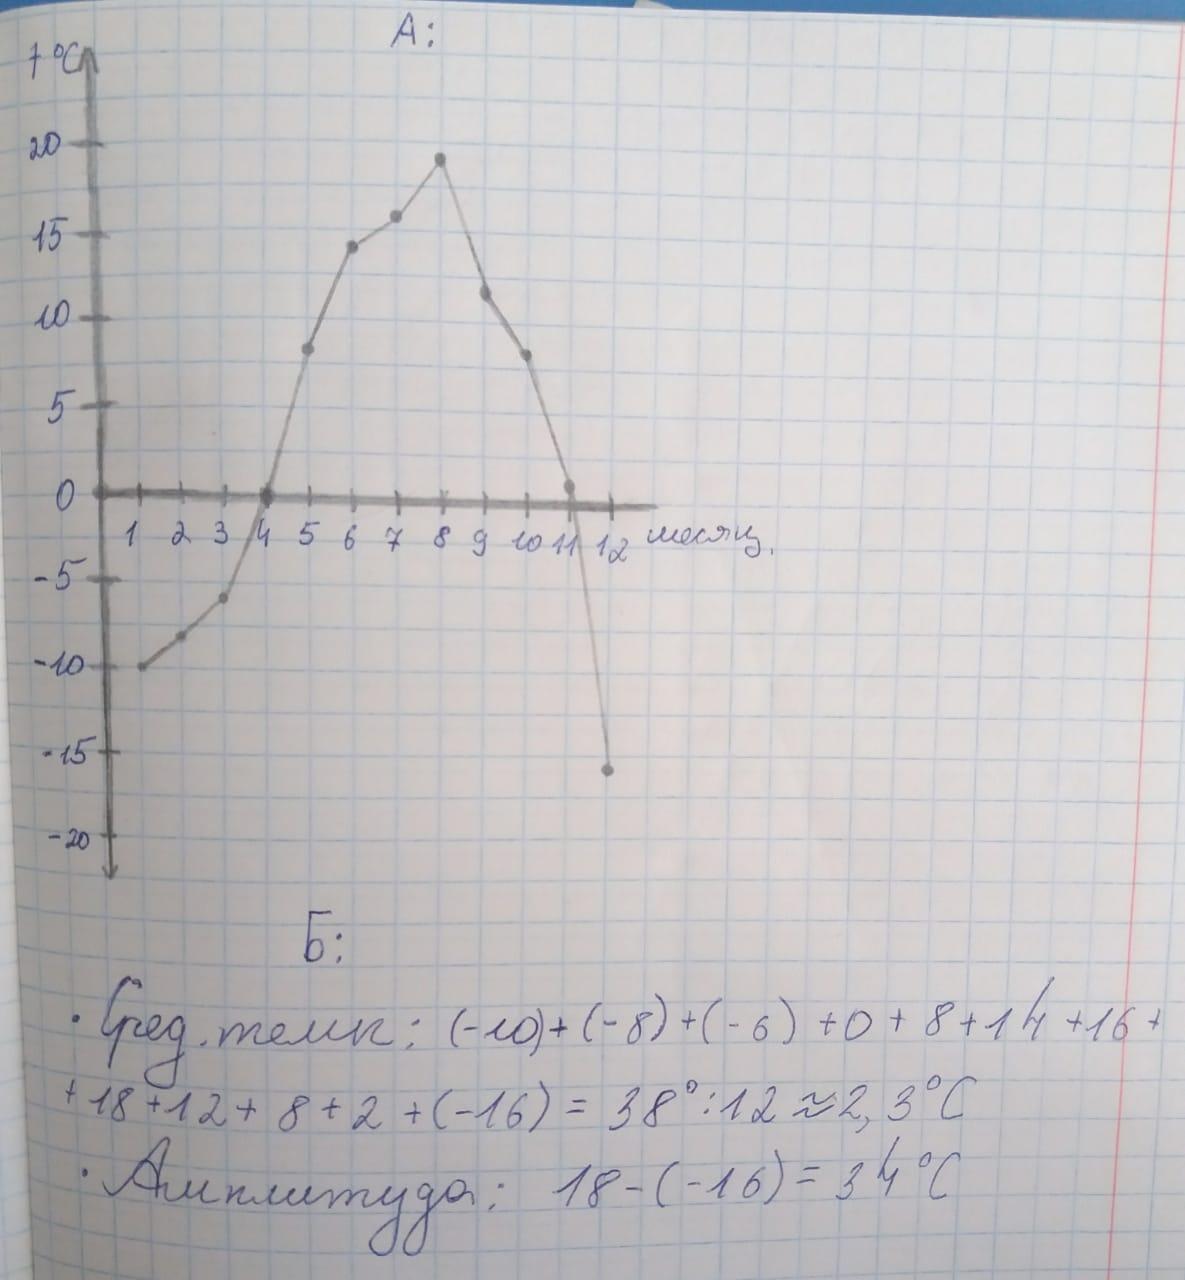 А:
t°C
20
15
10
5
0
1 2 3 4 5 6 7 8 9 10 11 12 месяц.
-5
-10
-15
-20
Б:
· Сред. темп: (-10)+(-8)+(-6)+0+8+14+16+
+18+12+8+2+(-16)=38°:12≈2,3°C
· Амплитуда: 18-(-16)=34°C